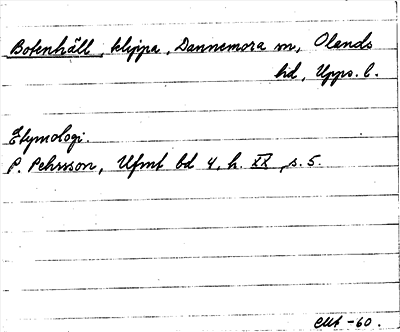 Botenhäll, klippa, Dannemora sn, Olands
hd, Upps. l.
Etymologi.
P. Pehrsson, Ufmt bd 4, h. XX, s. 5.
-60.